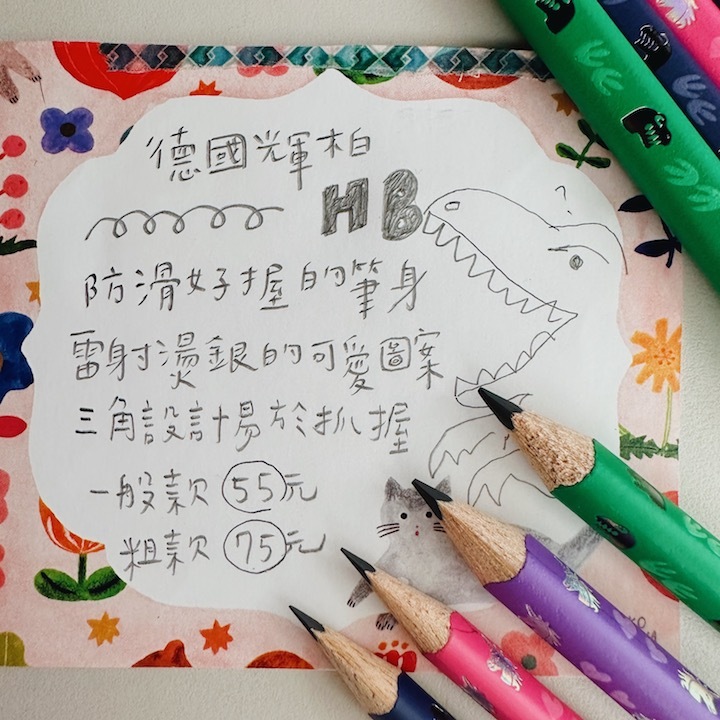 德國輝柏
HB
?
防滑好握的筆身
雷射燙銀的可愛圖案
三角設計易於抓握
一般款 55元
粗款 75元